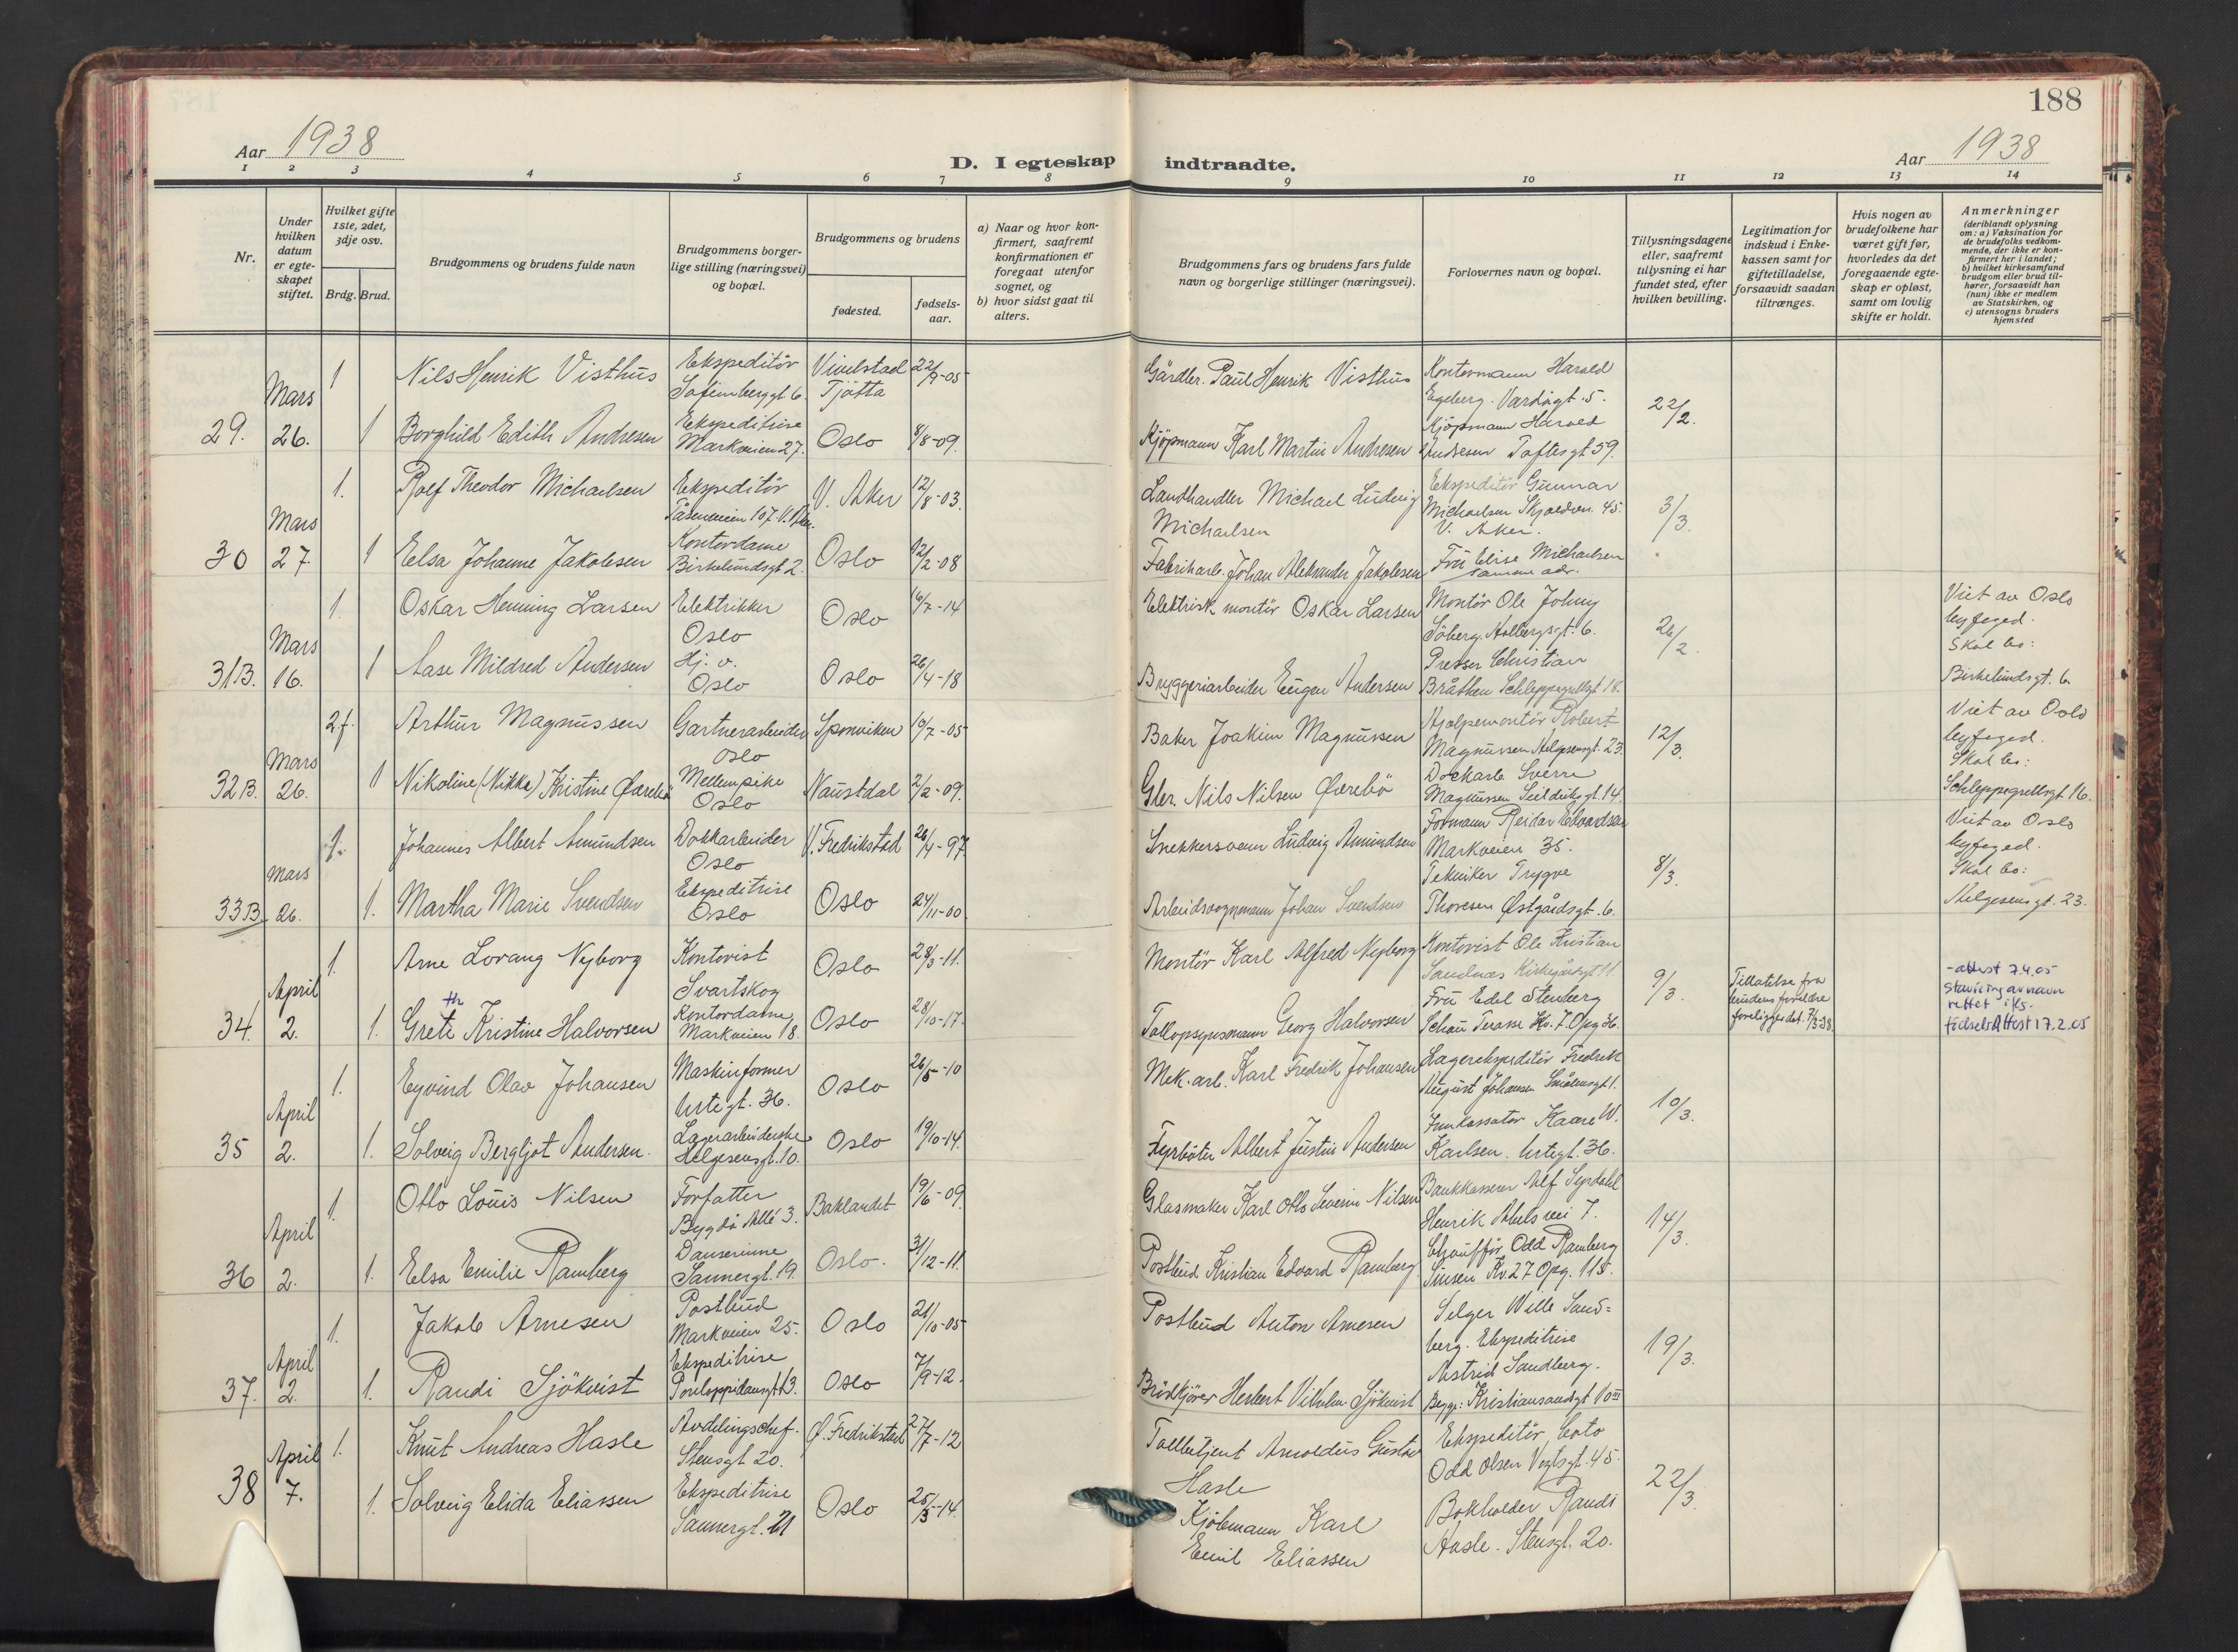 188
Aar 1938
D. I egteskap indtraadte.
Aar 1938
1 2 3 4 5 6 7 8 9 10 11 12 13 14
Nr.
Under hvilken datum er egteskapet stiftet.
Hvilket gifte 1ste, 2det, 3dje osv.
Brdg. Brud.
Brudgommens og brudens fulde navn
Brudgommens borgerlige stilling (næringsvei) og bopæl.
Brudgommens og brudens
fødested.
fødsels-aar.
a) Naar og hvor konfirmert, saafremt konfirmationen er foregaat utenfor sognet, og
b) hvor sidst gaat til alters.
Brudgommens fars og brudens fars fulde navn og borgerlige stillinger (næringsvei).
Forlovernes navn og bopæl.
Tillysningsdagene eller, saafremt tillysning ei har fundet sted, efter hvilken bevilling.
Legitimation for indskud i Enkekassen samt for giftetilladelse, forsaavidt saadan tiltrænges.
Hvis nogen av brudefolkene har været gift før, hvorledes da det foregaaende egteskap er opløst, samt om lovlig skifte er holdt.
Anmerkninger
(deriblandt oplysning om: a) Vaksination for de brudefolks vedkommende, der ikke er konfirmert her i landet;
b) hvilket kirkesamfund brudgom eller brud tilhører, forsaavidt han (hun) ikke er medlem av Statskirken, og
c) utensogns bruders hjemsted
29. Mars 26.
1 Nils Henrik Visthus Ekspeditör Sofienberggt 6. Vivelstad Tjötta 22/9-05 Gårdbr. Paul Henrik Visthus Kontormann Harald Egeberg. Vardögt. 5. 22/2.
1 Borghild Edith Andresen Ekspeditrise Markveien 27. Oslo 8/8-09. Kjöpmann Karl Martin Andresen Kjöpmann Harald Andresen Toftesgt 59.
30 Mars 27.
1. Rolf Theodor Michaelsen Ekspeditör Tåsenveien 107. V. Aker. V. Aker 12/8-03. Landhandler Michael Ludvig Michaelsen Ekspeditör Gunnar Michaelsen Skjoldvn. 45. V. Aker. 3/3.
1 Elsa Johanne Jakobsen Kontordame Birkelundsgt 2. Oslo 12/2-08 Fabrikarb. Johan Aleksander Jakobsen Frü Elise Michaelsen samme adr.
31B. Mars 16.
1. Oskar Henning Larsen Elektriker Oslo Oslo 16/7-14 Elektrisk montör Oskar Larsen Montör Ole Johny Söberg. Holbergsgt. 6. 26/2. Viet av Oslo byfoged. Skal bo: Birkelundsgt. 6.
1 Aase Mildred Andersen Hj. v. Oslo Oslo 26/4-18 Bryggeriarbeider Eugen Andersen Presser Christian Bråthen Schleppegrellsgt 18.
32B. Mars 26.
2.f. Arthur Magnussen Gartnerarbeider Oslo Sponviken 10/7-05 Baker Joakim Magnussen Hjelpemontör Robert Magnussen Helgesensgt. 23. 12/3. Viet av Oslo byfoged. Skal bo: Schleppegrellsgt 16.
1 Nikoline (Nikka) Kristine Ørebö Mellempike Oslo Naustdal 2/2-09. Gbr. Nils Nilsen Ørebö Dokarb Sverre Magnussen Seilduksgt. 14.
33B. Mars 26.
1. Johannes Albert Amundsen Dokkarbeider Oslo V. Fredrikstad 26/4-97 Snekkersvenn Ludvig Amundsen Formann Reidar Edvardsen Markveien 35. 8/3. Viet av Oslo byfoged. Skal bo: Helgesensgt. 23.
1. Martha Marie Svendsen Ekspeditrise Oslo Oslo 24/11-00. Arbeidsvognmann Johan Svendsen Tekniker Trygve Thoresen Østgårdsgt. 6.
34. April 2.
1. Arne Lorang Nyborg Kontorist Svartskog Oslo 28/3-11. Montör Karl Alfred Nyborg Kontorist Ole Kristian Sandnæs Kirkegårdsgt 11 9/3. Tillatelse fra brudens foreldre foreligger dat. 7/3-38 - attest 7.4.05 staving av navn rettet iks. fødselsAttest 17.2.05
1. Grete th Kristine Halvorsen Kontordame Markveien 18. Oslo 28/10-17. Tollopsynsmann Georg Halvorsen Frü Edel Stenberg Schou Terasse Kv. 7. Opg 36.
35 April 2.
1. Eyvind Olav Johansen Maskinformer Urtegt. 36. Oslo 26/5-10 Mek. arb. Karl Fredrik Johansen Lagerekspeditör Fredrik August Johansen Smålensgt 1. 10/3.
1. Solveig Bergljot Andersen. Lagerarbeiderske Helgesensgt. 10. Oslo 19/10-14. Fyrböter Albert Justin Andersen Innkassator Kaare W. Karlsen. Urtegt. 36.
36 April 2.
1. Otto Louis Nilsen Forfatter Bygdö Allé 3. Baklandet 19/6-09. Glasmaker Karl Otto Severin Nilsen Bankkasserer Alf Syrdahl Henrik Ibsens vei 7. 14/3.
1. Elsa Emilie Ramberg Danserinne Sannergt. 19. Oslo. 31/12-11. Postbud Kristian Edvard Ramberg. Chaufför Odd Ramberg Sinsen Kv. 27 Opg. 115.
37. April 2.
1. Jakob Arnesen Postbud Markveien 25. Oslo 21/10-05 Postbud Anton Arnesen Selger Wille Sandberg. Ekspeditrise Astrid Sandberg. Begge: Kristiansandsgt 10 III 19/3.
1. Randi Sjökvist Ekspeditrise Oslo 7/9-12. Brödkjörer Herbert Vilhelm Sjökvist
38 April 7.
1. Knut Andreas Hasle Avdelingschef. Stensgt 20. Ø. Fredrikstad 27/7-12 Tollbetjent Arnoldus Gustav Hasle Ekspeditör Coto Odd Olsen Vogtsgt. 45. 22/3.
1. Solveig Elida Eliassen Ekspeditrise Sannergt. 21 Oslo 25/3-14. Kjöbmann Karl Emil Eliassen Bokholder Randi Hasle. Stensgt. 20.